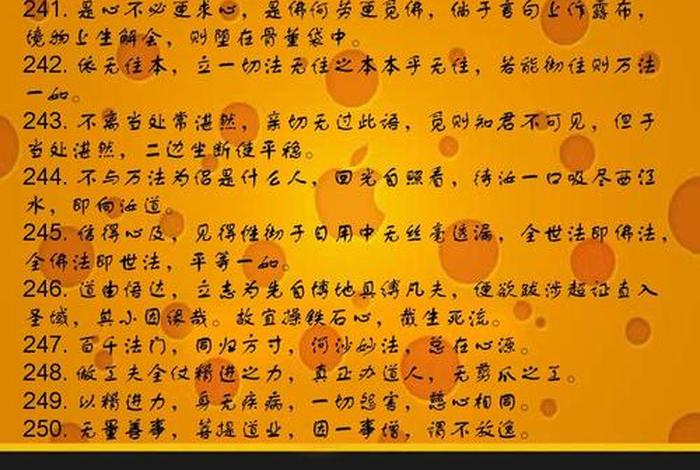 241. 是心不必更求心，是佛何劳更觅佛，倘于言句上作露布，
境物上生解会，则堕在骨董袋中。
242. 依无住本，立一切法无住之本本乎无住，若能彻住则万法
一如。
243. 不离当处常湛然，亲切无过此语，觅则知君不可见，但于
当处湛然，二边坐断使平稳。
244. 不与万法为侣是什么人，回光自照看，待汝一口吸尽西江
水，即向汝道。
245. 信得心及，见得性彻于日用中无丝毫透漏，全世法即佛法，
全佛法即世法，平等一如。
246. 道由悟达，立志为先自博地具缚凡夫，便欲跋涉超证直入
圣域，其小因缘哉。故宜操铁石心，截生死流。
247. 百千法门，同归方寸，河沙妙法，总在心源。
248. 做工夫全仗精进之力，真正办道人，无剪爪之工。
249. 以精进力，身无疾病，一切怨害，慈心相同。
250. 无量善事，菩提道业，因一事增，谓不放逸。